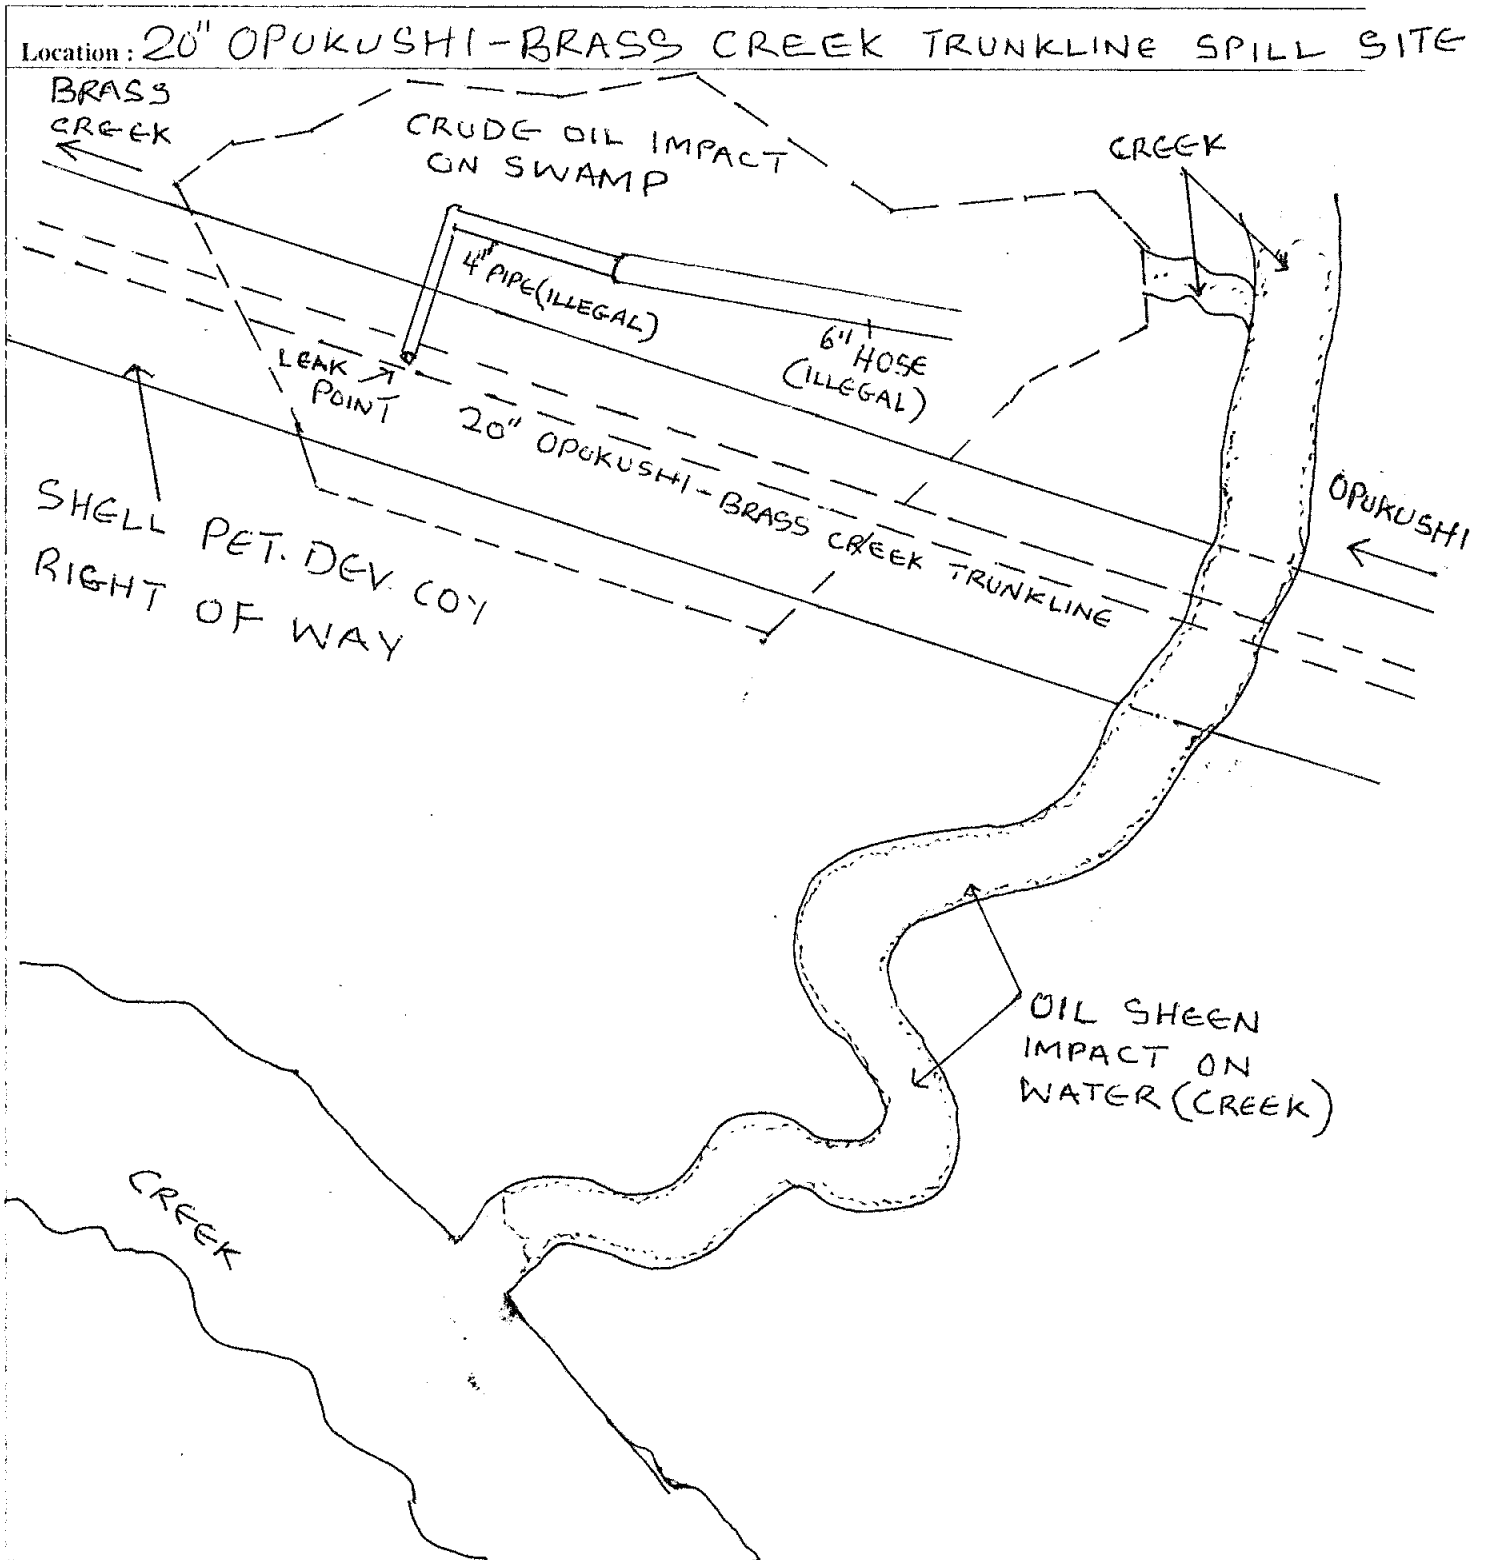 Location : 20" OPUKUSHI-BRASS CREEK TRUNKLINE SPILL SITE
BRASS
CREEK
CRUDE OIL IMPACT
ON SWAMP
CREEK
4" PIPE (ILLEGAL)
6" HOSE
(ILLEGAL)
LEAK
POINT
20" OPUKUSHI-BRASS CREEK TRUNKLINE
OPUKUSHI
SHELL PET. DEV. COY
RIGHT OF WAY
OIL SHEEN
IMPACT ON
WATER (CREEK)
CREEK